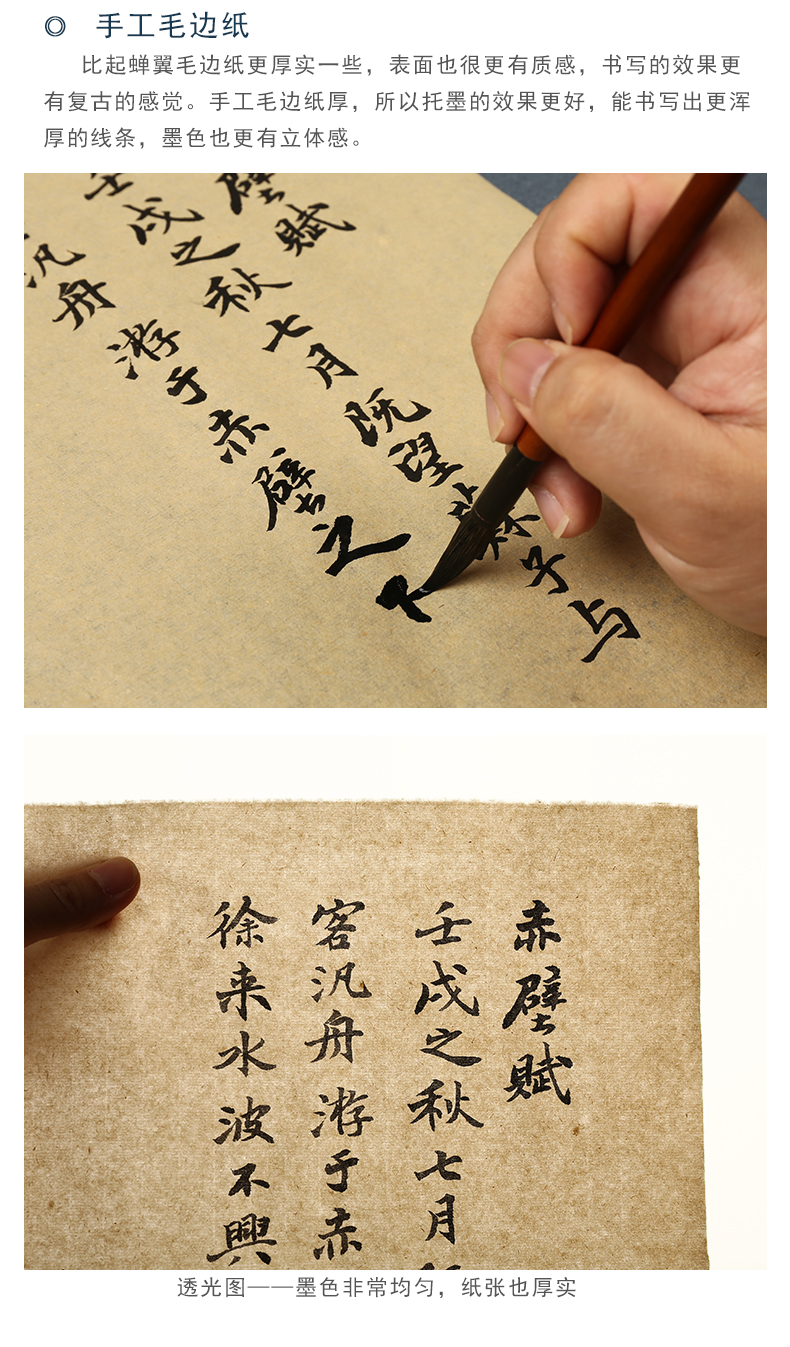 ◎ 手工毛边纸
比起蝉翼毛边纸更厚实一些，表面也很更有质感，书写的效果更
有复古的感觉。手工毛边纸厚，所以托墨的效果更好，能书写出更浑
厚的线条，墨色也更有立体感。
壁賦
壬戌之秋七月既望蘇子与
汎舟游于赤壁之
赤壁賦
壬戌之秋七月
客汎舟游于赤
徐来水波不興
透光图——墨色非常均匀，纸张也厚实